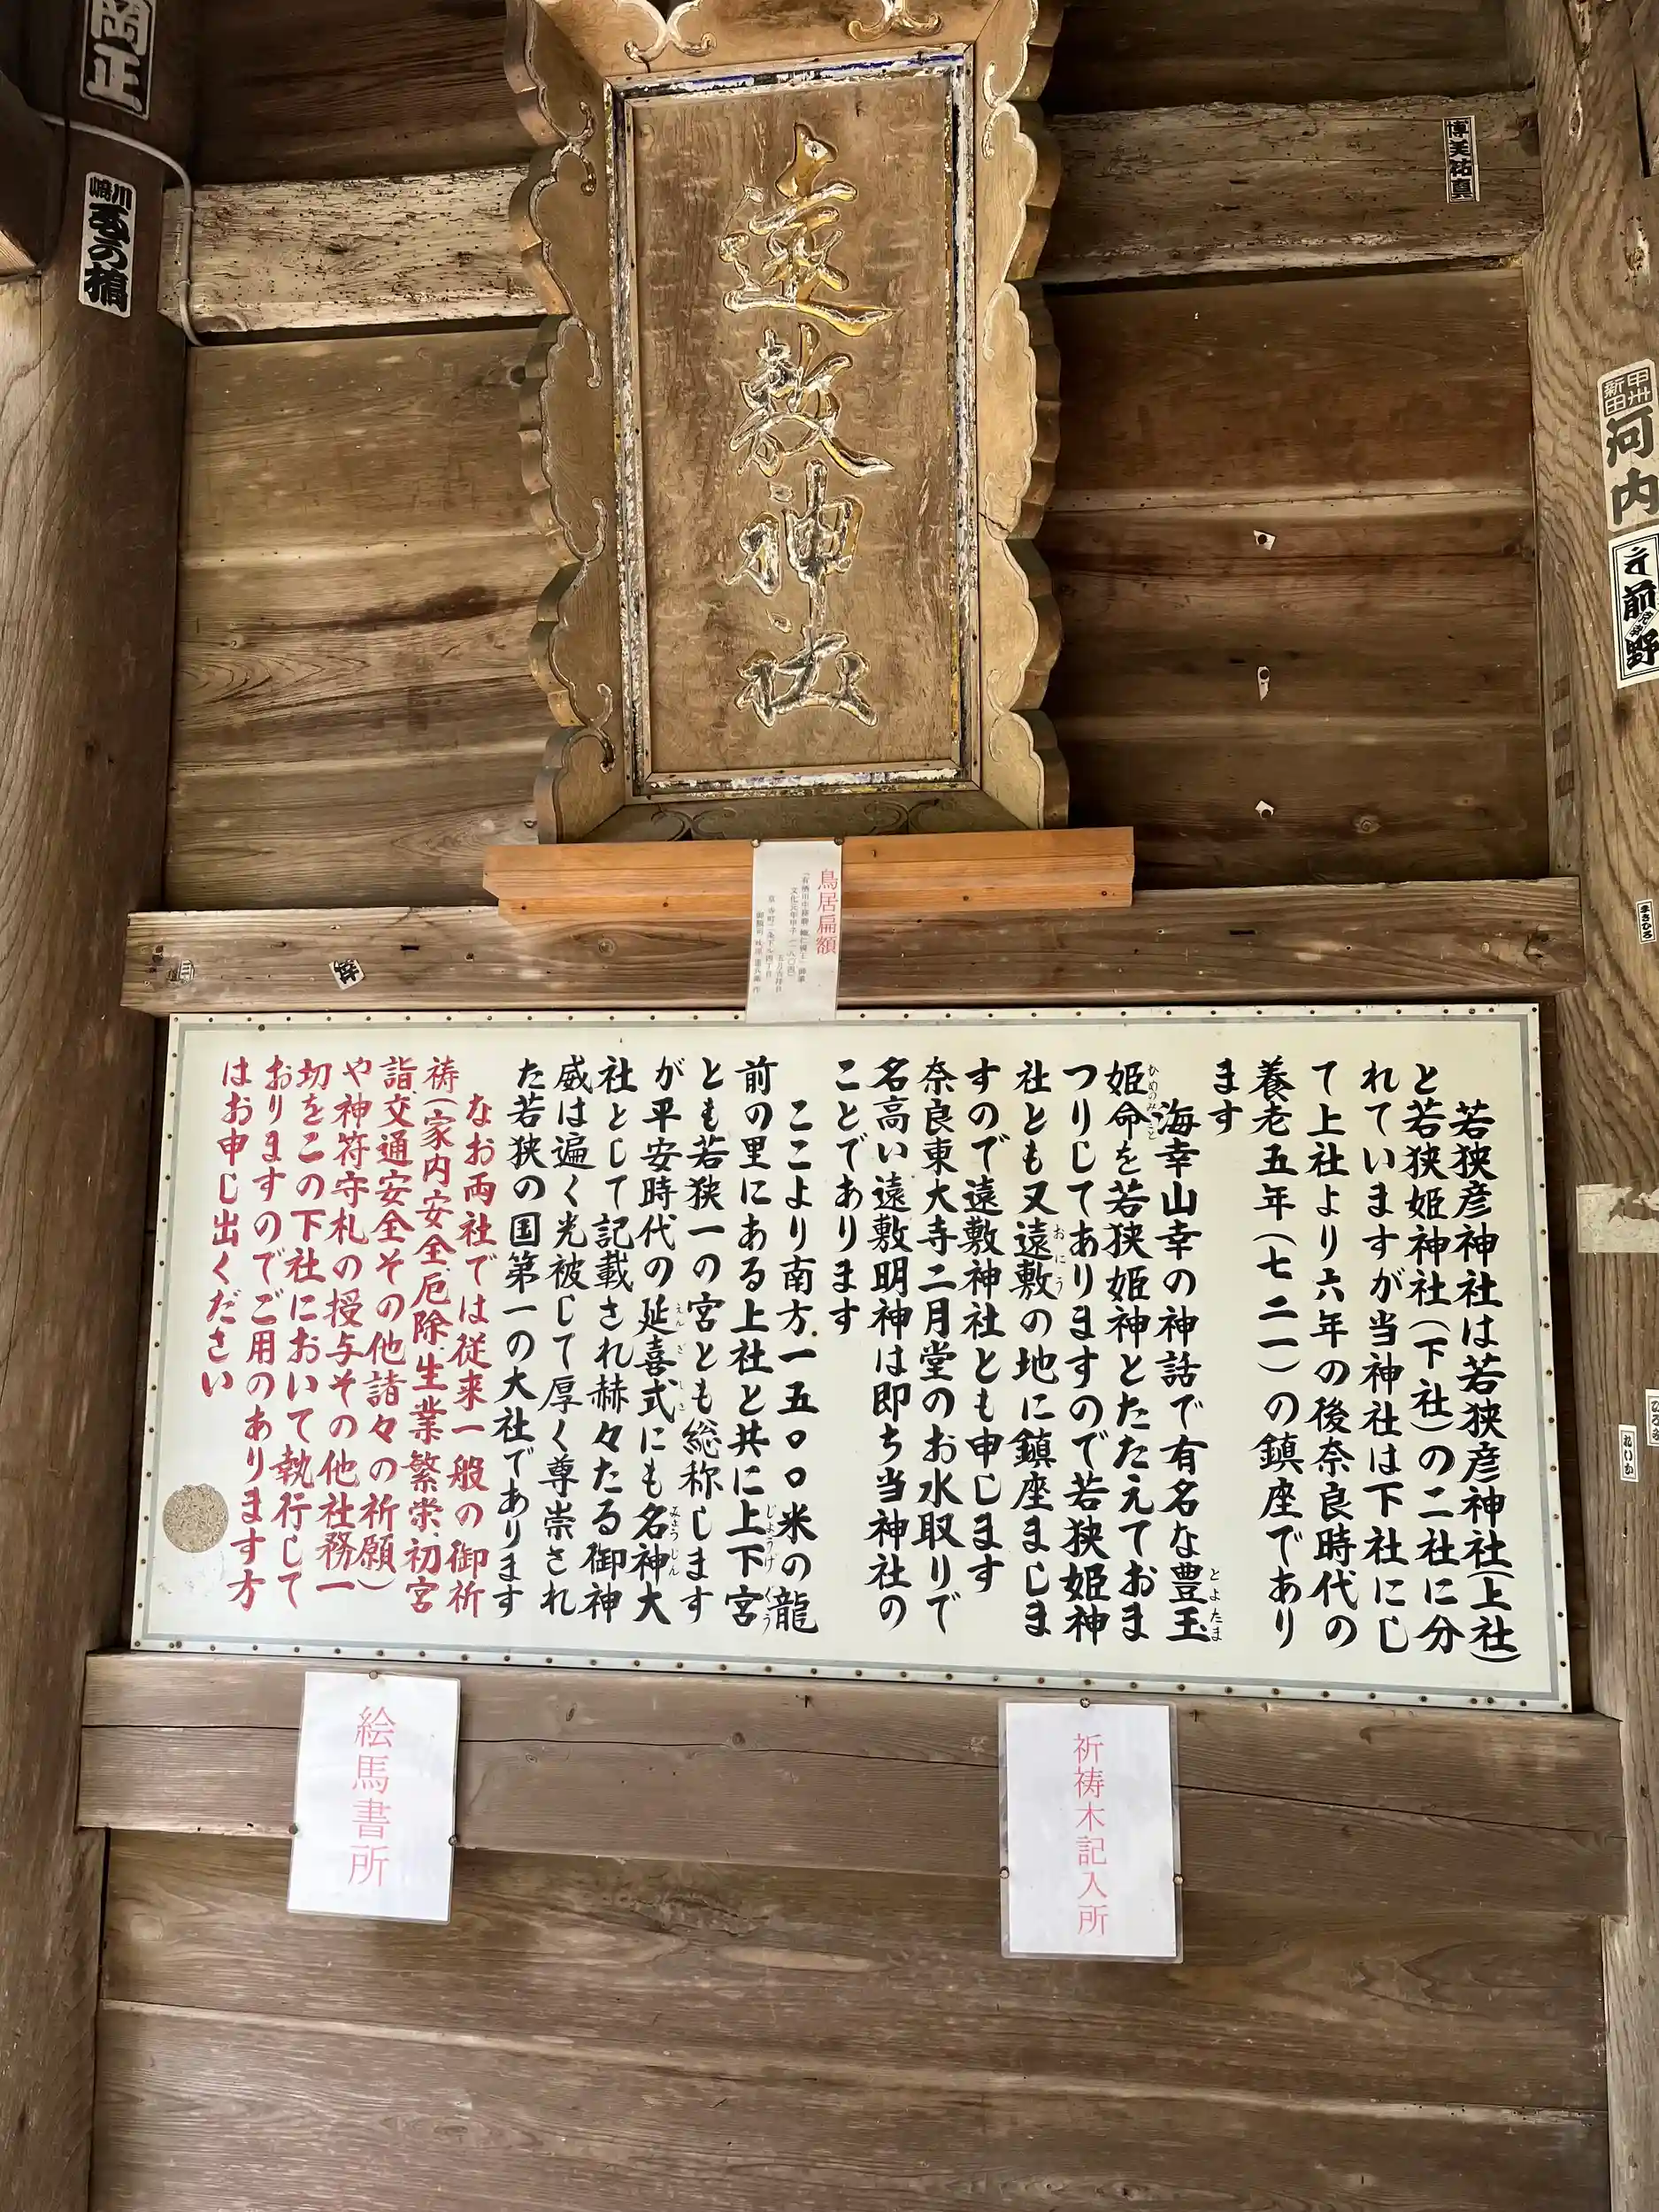 遠敷神社
鳥居扁額
若狭彦神社は若狭彦神社(上社)
と若狭姫神社(下社)の二社に分
れていますが当神社は下社にし
て上社より六年の後奈良時代の
養老五年(七二一)の鎮座であり
ます
海幸山幸の神話で有名な豊玉
とよたま
姫命を若狭姫神とたたえておま
ひめのみこと
つりしてありますので若狭姫神
社とも又遠敷の地に鎮座ましま
おにう
すので遠敷神社とも申します
奈良東大寺二月堂のお水取りで
名高い遠敷明神は即ち当神社の
ことであります
ここより南方一五〇〇米の龍
前の里にある上社と共に上下宮
じようげぐう
とも若狭一の宮とも総称します
が平安時代の延喜式にも名神大
えんぎしき
みようじん
社として記載され赫々たる御神
威は遍く光被して厚く尊崇され
た若狭の国第一の大社であります
なお両社では従来一般の御祈
祷(家内安全、厄除、生業繁栄、初宮
詣、交通安全その他諸々の祈願)
や神符守札の授与その他社務一
切をこの下社において執行して
おりますのでご用のあります方
はお申し出ください
絵馬書所
祈祷木記入所
岡正
博美祐真
甲州
新田
河内
前野
まさひろ
れいか